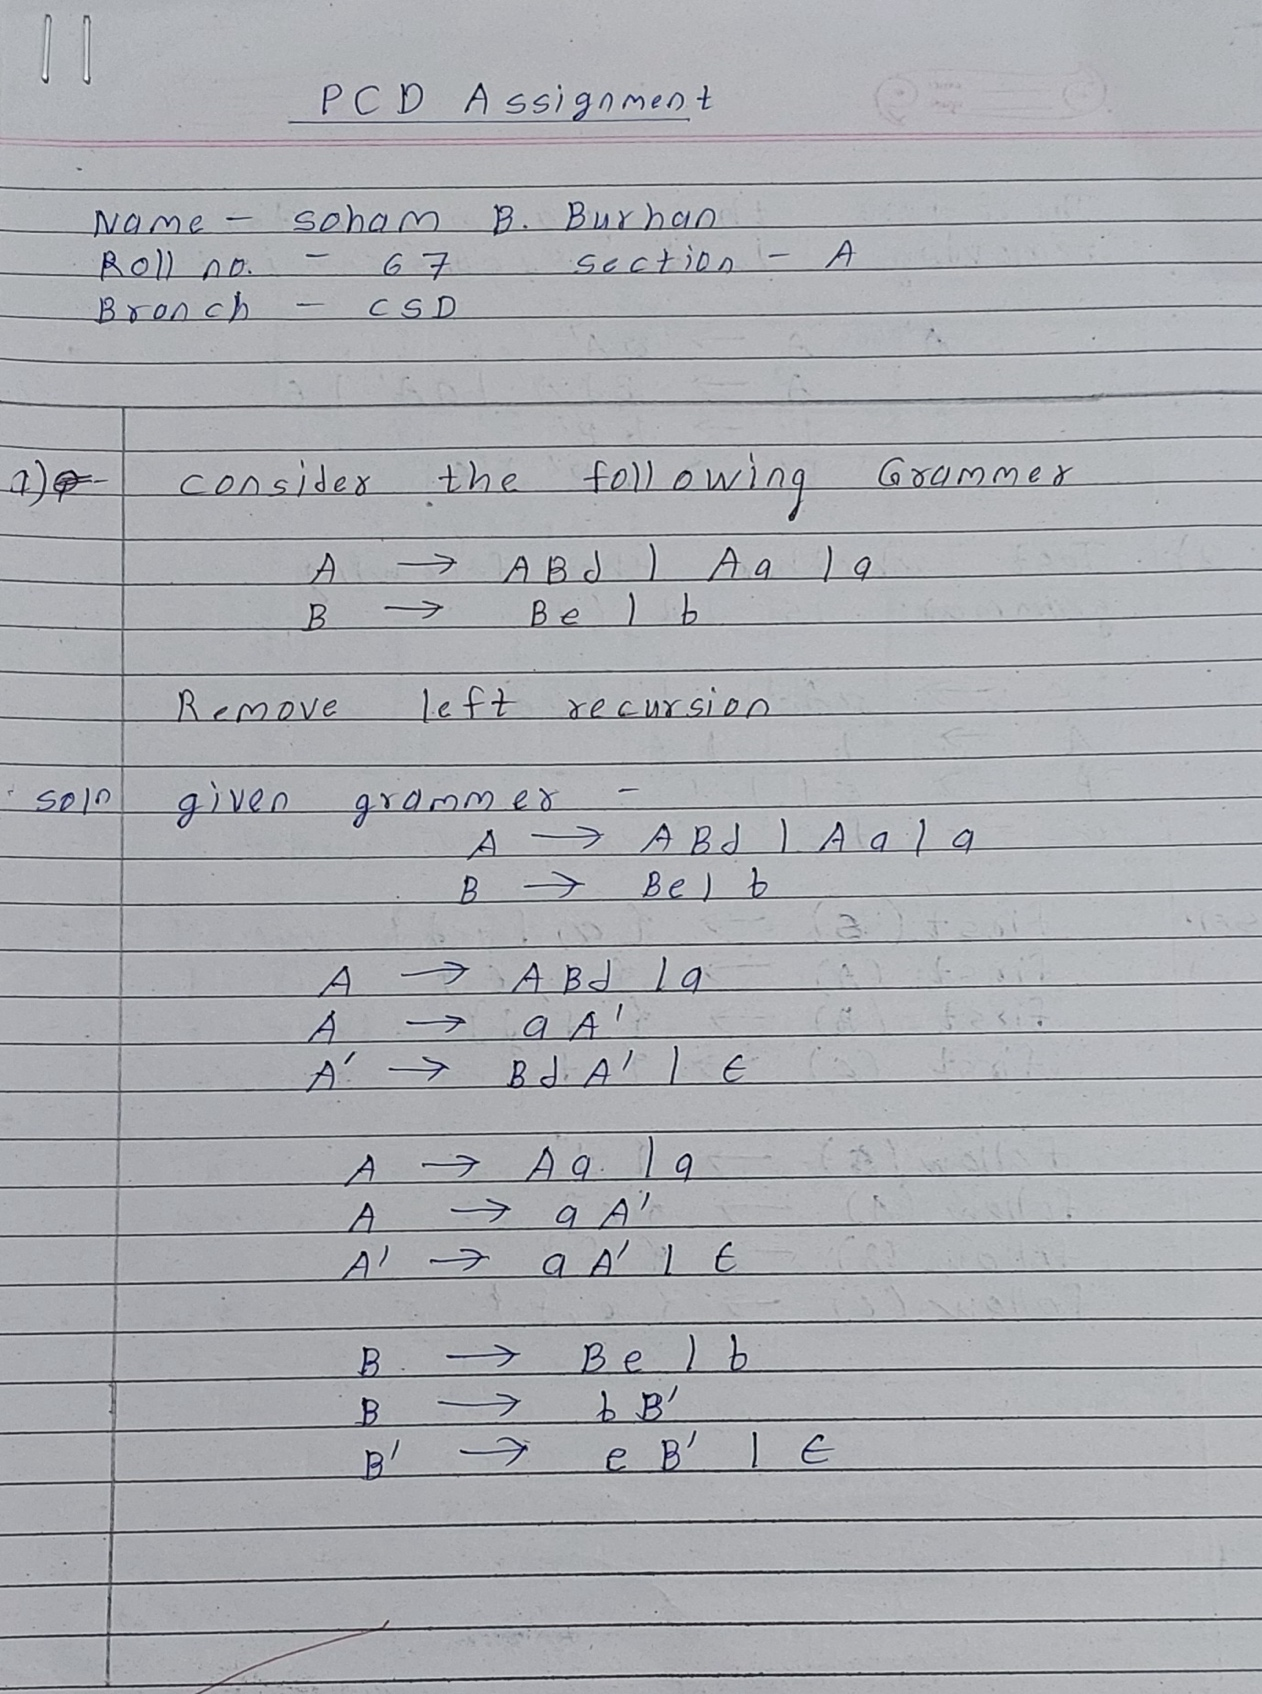 PCD Assignment
Name - Soham B. Burhan
Roll no. - 67 section - A
Branch - CSD
a) consider the following Grammer
A → ABd | Aa | a
B → Be | b
Remove left recursion
soln given grammer -
A → ABd | Aa | a
B → Be | b
A → ABd | a
A → aA'
A' → BdA' | ε
A → Aa | a
A → aA'
A' → aA' | ε
B → Be | b
B → bB'
B' → eB' | ε